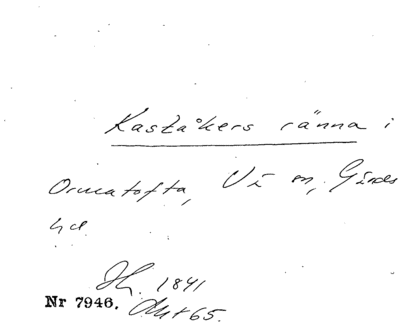 Kaståkers ränna i
Ormatofta, Vä sn, Gärds
hd.
Jh. 1841
Nr 7946. Akt 65.